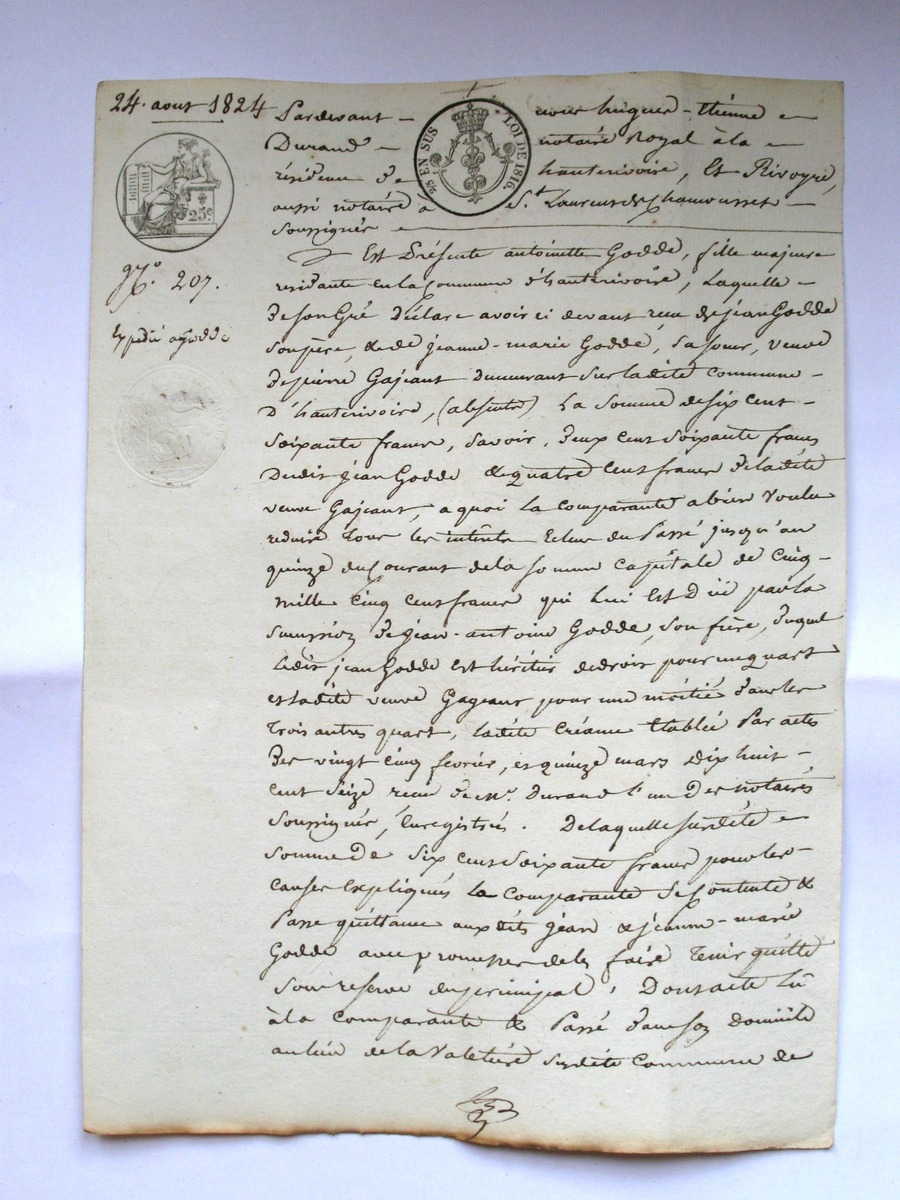 24. aout 1824
25 EN SUS
LOI DE 1816.
25c
N.º 207.
Expédié
Pardevant nous hugues-étienne
Durand notaire Royal à la
résidence de hauterivoire, Et Rivoyre,
aussi notaire à S.t Laurent de Chamousset
soussignés
Est Présente antoinette Godde, fille majeure
residante en la commune d'hauterivoire, Laquelle
de son Gré Déclare avoir ci devant reçu de jean Godde
son père, & de jeanne-marie Godde, sa sœur, veuve
de pierre Gajeant demeurant sur ladite commune
D'hauterivoire, (absents) La somme de six cent
soixante francs, savoir, deux cent soixante francs
Dudit jean Godde & quatre cent francs de ladite
veuve Gajeant, a quoi la comparante a bien voulu
reduire tous les intérêts Echus du Passé jusqu'au
quinze du Courant de la somme capitale de cinq
mille cinq cent francs qui Lui Est Due par la
succession de jean-antoine Godde, son frère, duquel
Ledit jean Godde est héritier de droit pour un quart
et ladite veuve Gageant pour une moitié dans les
trois autres quart, ladite créance Etablie Par actes
des vingt cinq fevrier, et quinze mars Dix huit
cent seize reçus de M.e Durand l'un Des notaires
soussignés, Enregistrés. De laquelle susdite
somme De six cent soixante francs pour les
causes Expliqués La comparante se Contente &
Passe quittance aux dits jean & jeanne-marie
Godde avec promesse de les faire tenir quitte
sous reserve du principal, Dont acte Lu
à la comparante & Passé dans son Domicile
au lieu de la Valetière susdite commune de